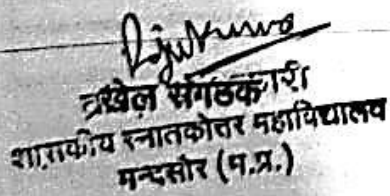 संगठक
शासकीय स्नातकोत्तर महाविद्यालय
मन्दसोर (म.प्र.)